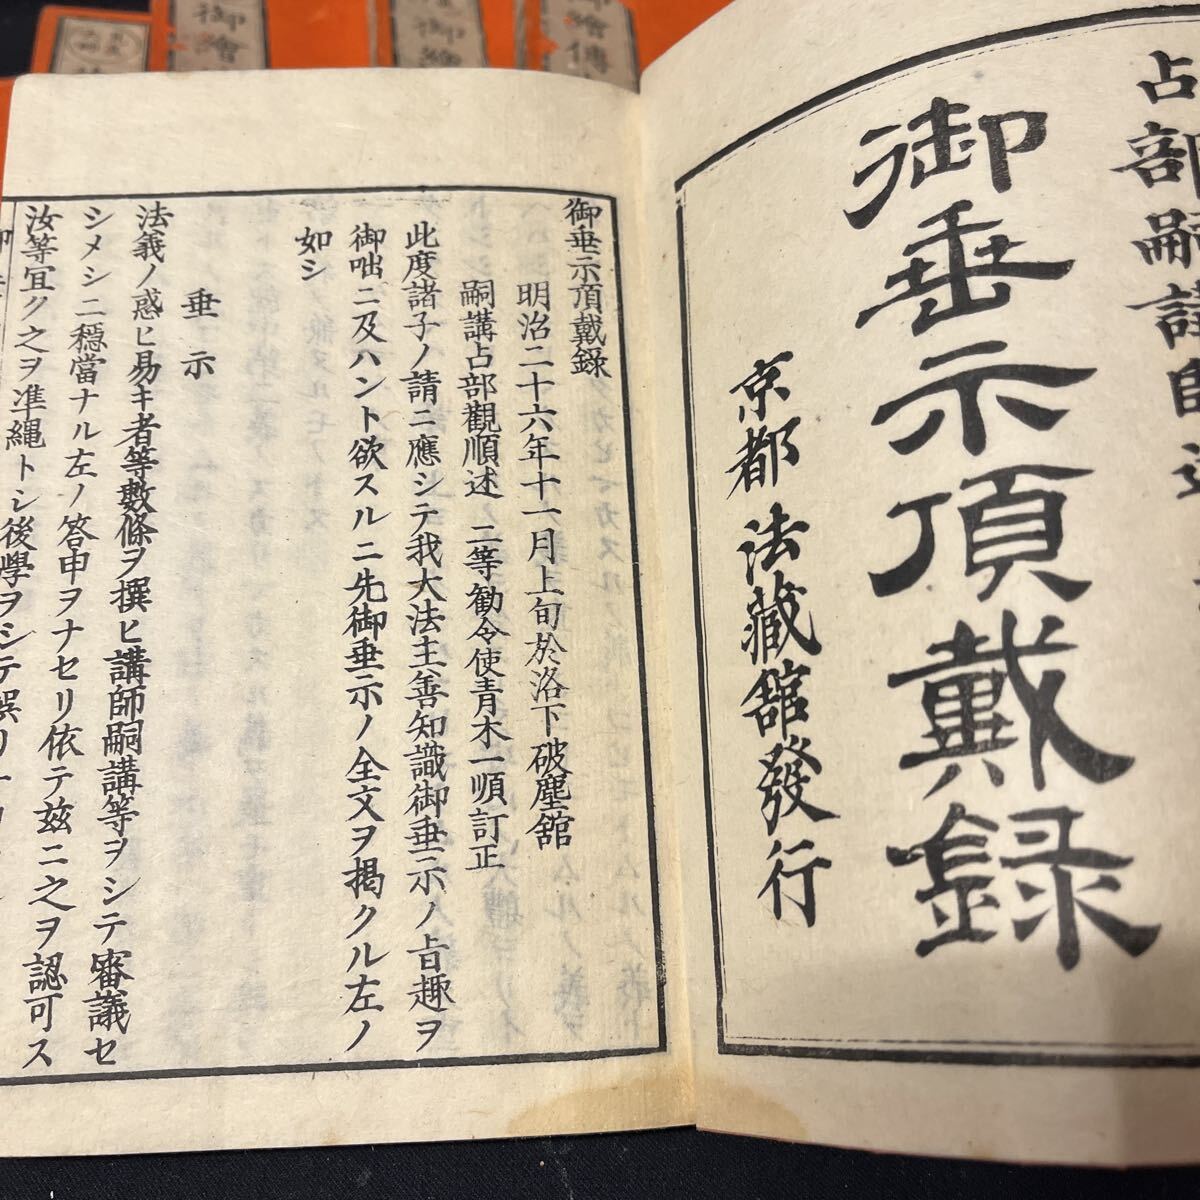 占部嗣講師述
御垂示頂戴録
京都 法藏舘發行
御垂示頂戴錄
明治二十六年十一月上旬於洛下破塵舘
嗣講占部觀順述 二等勸令使青木一順訂正
此度諸子ノ請ニ應シテ我大法主善知識御垂示ノ旨趣ヲ
御咄ニ及ハント欲スルニ先御垂示ノ全文ヲ揭クル左ノ
如シ
垂示
法義ノ惑ヒ易キ者等數條ヲ撰ヒ講師嗣講等ヲシテ審議セ
シメシニ穩當ナル左ノ答申ヲナセリ依テ玆ニ之ヲ認可ス
汝等宜ク之ヲ准縄トシ後學ヲシテ誤リ
御繪
御繪
御繪傳